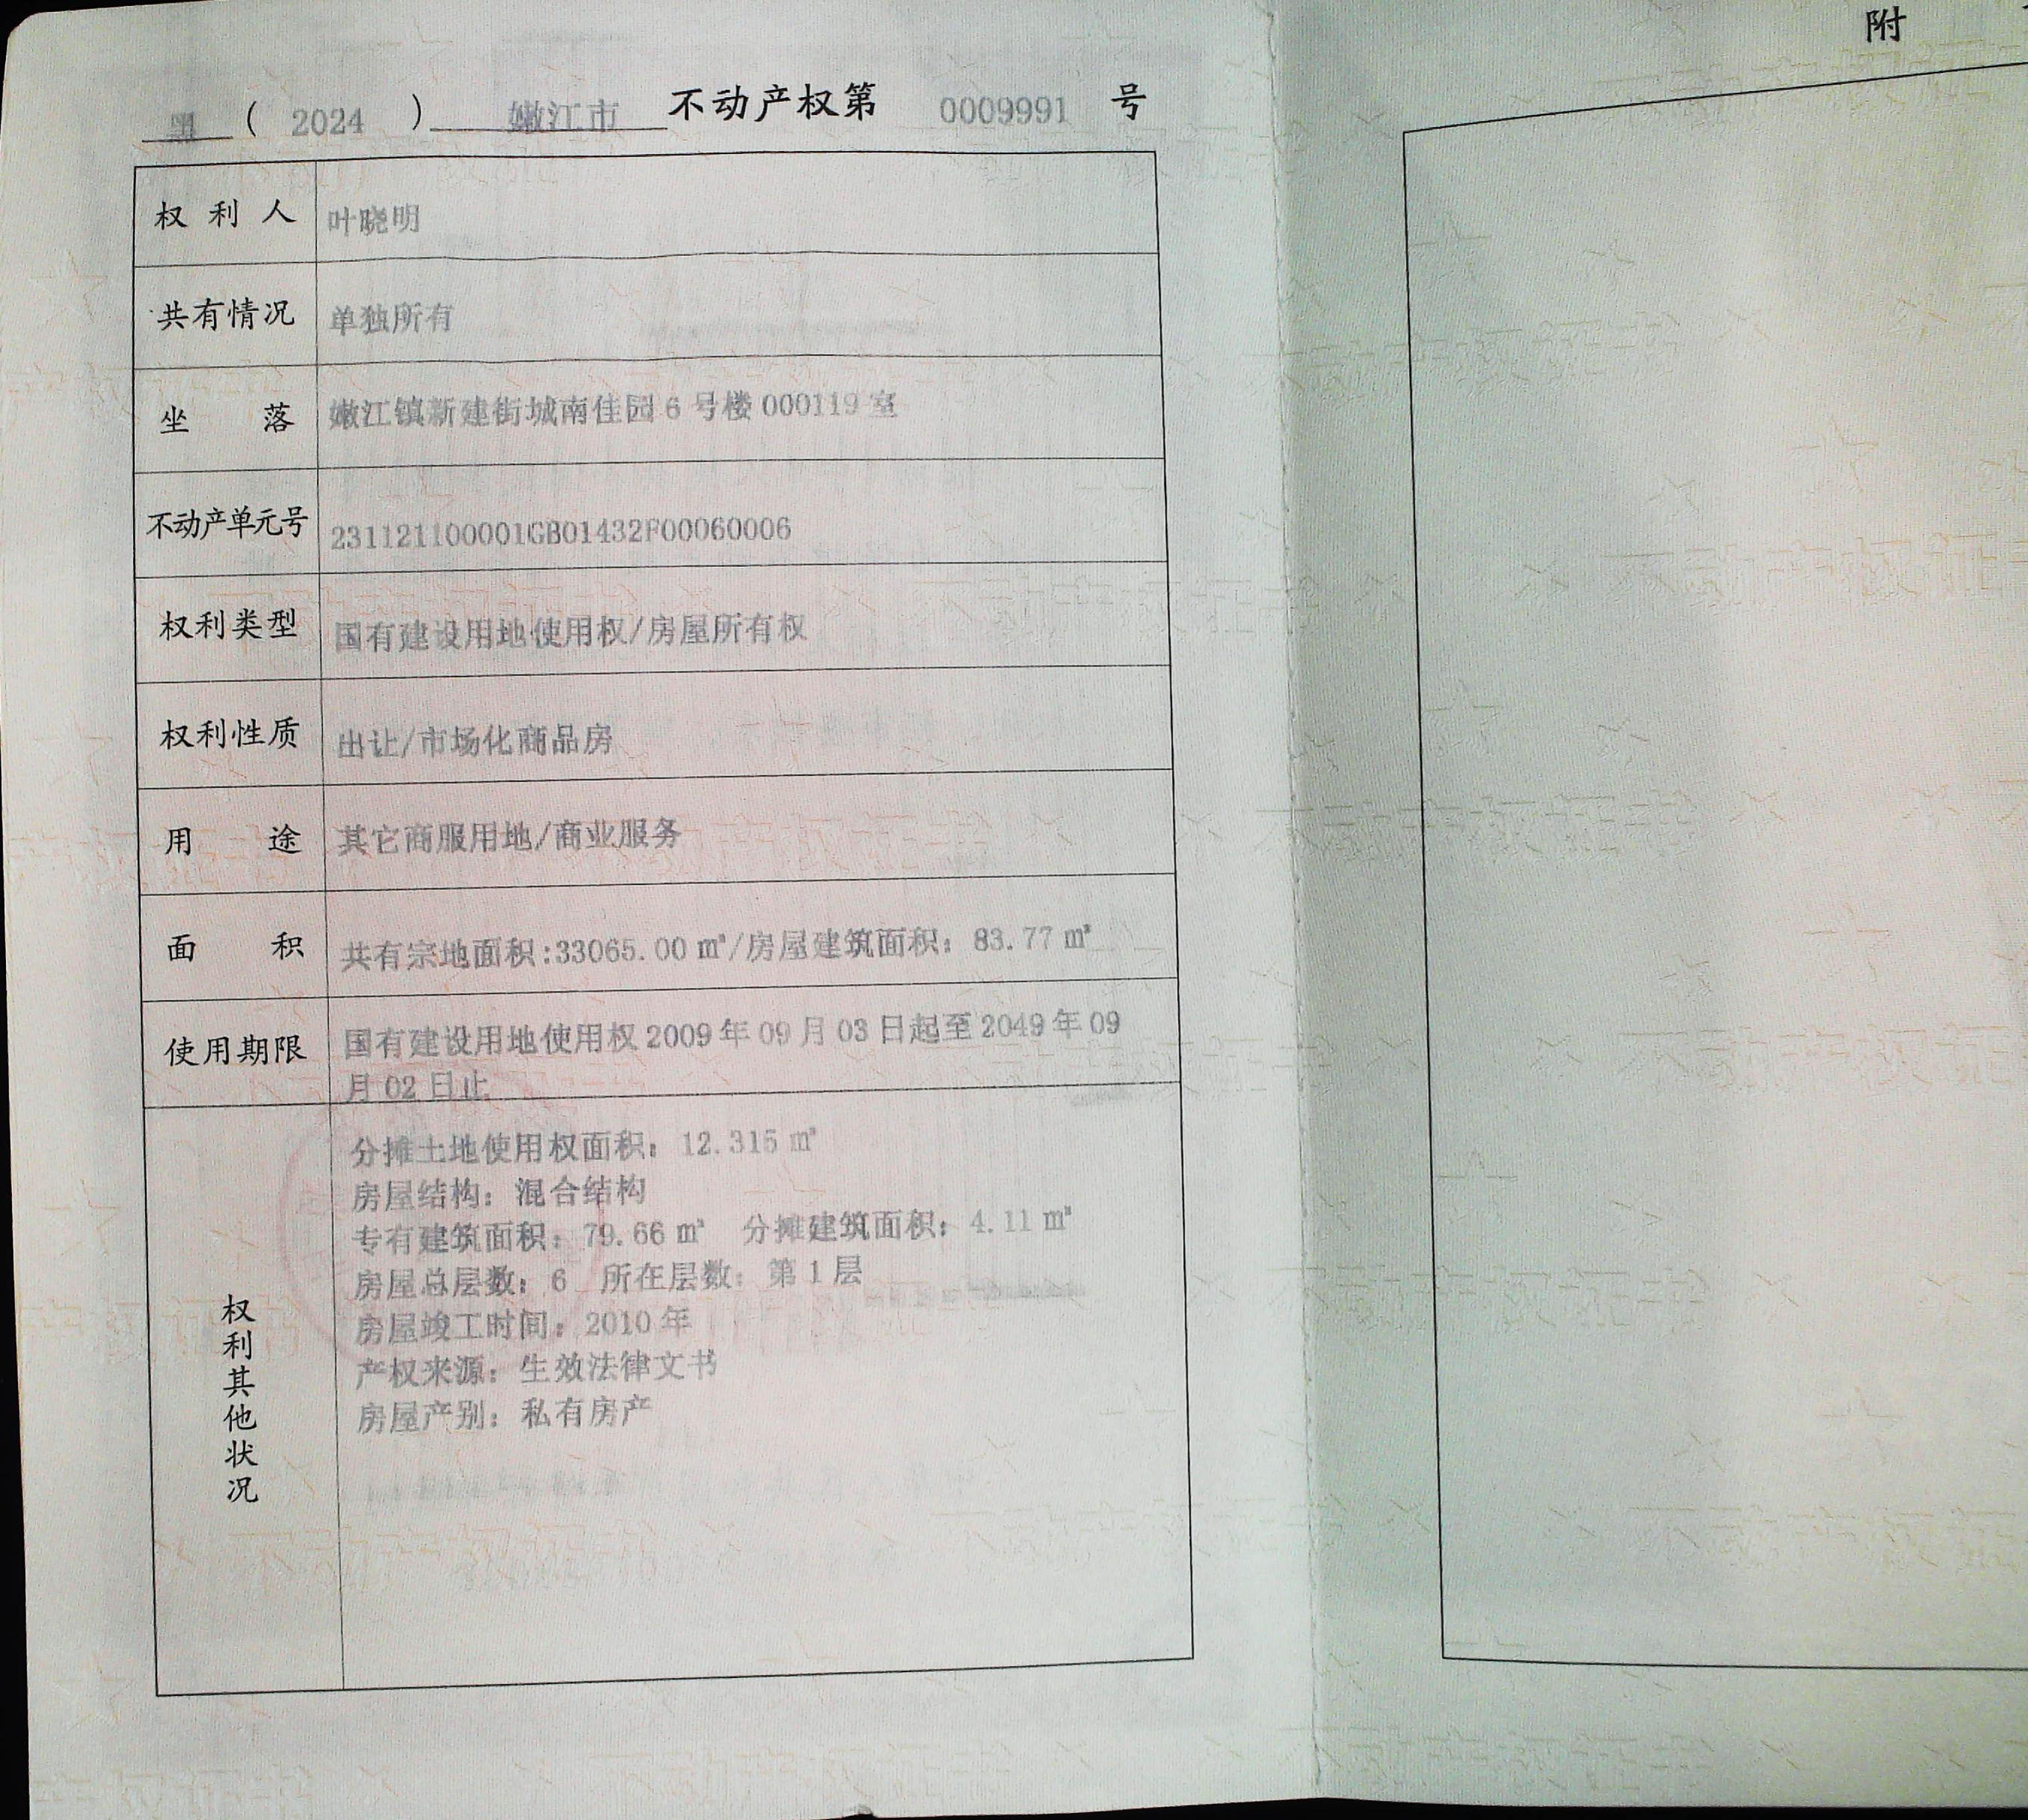 黑 ( 2024 ) 嫩江市 不动产权第 0009991 号
权利人 叶晓明
共有情况 单独所有
坐落 嫩江镇新建街城南佳园6号楼000119室
不动产单元号 231121100001GB01432F00060006
权利类型 国有建设用地使用权/房屋所有权
权利性质 出让/市场化商品房
用途 其它商服用地/商业服务
面积 共有宗地面积:33065.00㎡/房屋建筑面积：83.77㎡
使用期限 国有建设用地使用权2009年09月03日起至2049年09
月02日止
权利其他状况
分摊土地使用权面积：12.315㎡
房屋结构：混合结构
专有建筑面积：79.66㎡ 分摊建筑面积：4.11㎡
房屋总层数：6 所在层数：第1层
房屋竣工时间：2010年
产权来源：生效法律文书
房屋产别：私有房产
附